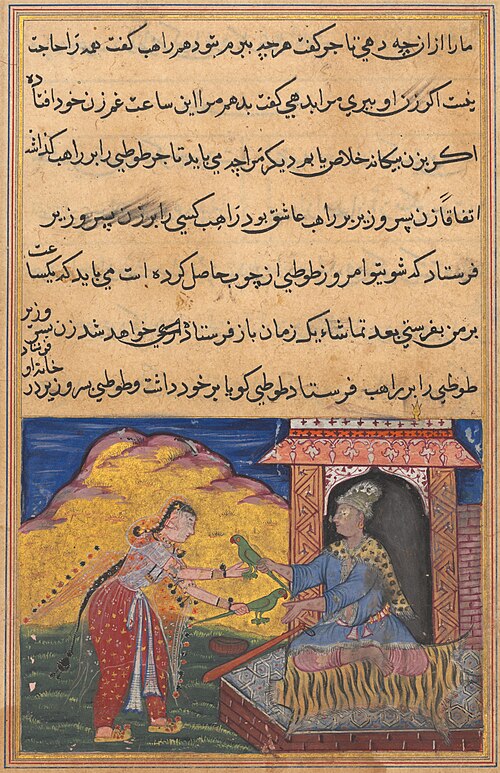 مارا ازان چه دهی تاجر گفت هرچه ببرم تو دهم راهب گفت همه را حاجت
نیست اکر زن او بیری مرا بدهی گفت بدهم مرا این ساعت غم زن خود افتاده
اکر بزن بیکانه خلاص یابم دیکر مرا چه می باید تاجر طوطی را بر راهب کذاشت
اتفاقاً زن پسر وزیر بر راهب عاشق بود راهب کسی را بر زن پسر وزیر
فرستاد که شو یتو امروز طوطی از چوب حاصل کرده است می باید که یکساعت
بر من بفرستی بعد تماشا یک زمان باز فرستاده خواهد شد زن پسر وزیر
طوطی را بر راهب فرستاد طوطی کویا بر خود داشت و طوطی پسر وزیر در خانه او فرستاد